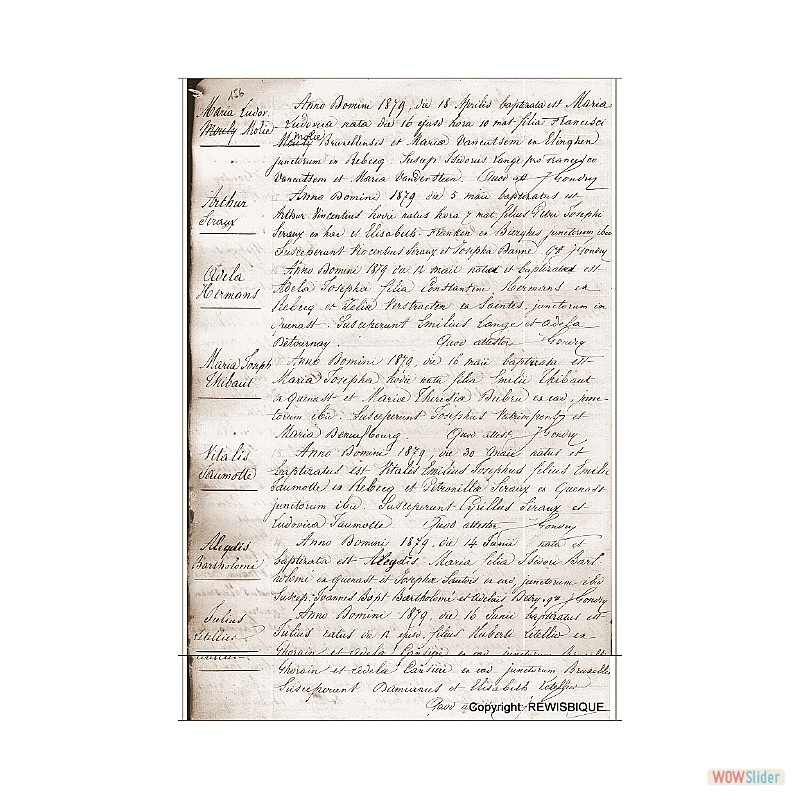 156
Maria Ludov.
Mouly Molie
Anno Domini 1879, die 18 Aprilis baptizata est Maria
Ludovica nata die 16 ejusd hora 10 mat filia Francisci
Molie
Mouly Bruxellensis et Maria Vancutsem ex Etinghen
junctorum in Rebecq. Suscep. Isidorus Lange pro Francisco
Vancutsem et Maria Vandersteen. Quod att J Gondry
Arthur
Seraux
Anno Domini 1879 die 5 maii baptizatus est
Arthur Vincentius hodie natus hora 7 mat. filius Petri Josephi
Seraux ex hac et Elisabeth Franken ex Bierghes junctorum ibi
Susceperunt Vincentius Seraux et Josepha Danné Qd J Gondry
Adela
Hermans
Anno Domini 1879 die 12 maii natus et baptizatus est
Adela Josepha filia Constantini Hermans ex
Rebecq et Zelia Verstraeten ex Saintes junctorum in
Quenast. Susceperunt Emilius Lange et Adela
Detournay. Quod attestor Gondry
Maria Joseph
Thibaut
Anno Domini 1879, die 16 maii baptizata est
Maria Josepha hodie nata filia Emilii Thibaut
a Quenast et Maria Theresia Dubru ex ead, junc-
torum ibid. Susceperunt Josephus Vatrimpont et
Maria Quod attest. J Gondry
Vitalis
Jaumotte
Anno Domini 1879, die 30 maii natus et
baptizatus est Vitalis Emilius Josephus filius Emilii
Jaumotte ex Rebecq et Petronilla Seraux ex Quenast
junctorum ibid. Susceperunt Cyrillus Seraux et
Ludovica Jaumotte. Quod attestor Gondry
Alegdis
Bartholomé
Anno Domini 1879. die 14 Junii nata et
baptizata est Alegdis Maria filia Isidori Bart
holomé ex Quenast et Josepha Sautois ex ead, junctorum ibid
Suscep. Joannes Bapt Bartholomé et Adelais Qd J Gondry
Julius
Letellier
Anno Domini 1879, die 16 Junii baptizatus est
Julius natus die 12 ejusd. filius Huberti Letellier ex
Ghorain et Adela Cansière ex ead junctorum Bruxelles
Ghorain et Adela Cansière ex ead junctorum Bruxelles
Susceperunt Damianus et Elisabeth Letellier
Quod
Copyright: REWISBIQUE
WOWSlider